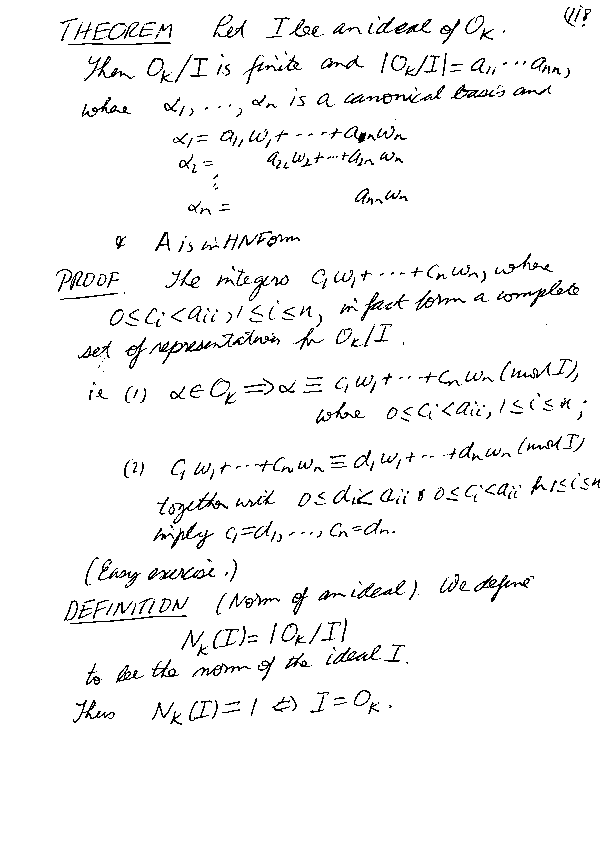 118
THEOREM Let I be an ideal of O_K.
Then O_K/I is finite and |O_K/I| = a_11 ··· a_nn,
where α_1, ..., α_n is a canonical basis and
α_1 = a_11 ω_1 + ··· + a_1n ω_n
α_2 = a_22 ω_2 + ··· + a_2n ω_n
⋮
α_n = a_nn ω_n
& A is in HNForm
PROOF. The integers c_1 ω_1 + ··· + c_n ω_n, where
0 ≤ c_i < a_ii, 1 ≤ i ≤ n, in fact form a complete
set of representatives for O_K/I.
ie (1) α ∈ O_K ⇒ α ≡ c_1 ω_1 + ··· + c_n ω_n (mod I),
where 0 ≤ c_i < a_ii, 1 ≤ i ≤ n;
(2) c_1 ω_1 + ··· + c_n ω_n ≡ d_1 ω_1 + ··· + d_n ω_n (mod I)
together with 0 ≤ d_i < a_ii & 0 ≤ c_i < a_ii for 1 ≤ i ≤ n
imply c_1 = d_1, ..., c_n = d_n.
(Easy exercise.)
DEFINITION (Norm of an ideal). We define
N_K(I) = |O_K/I|
to be the norm of the ideal I.
Thus N_K(I) = 1 ⇔ I = O_K.